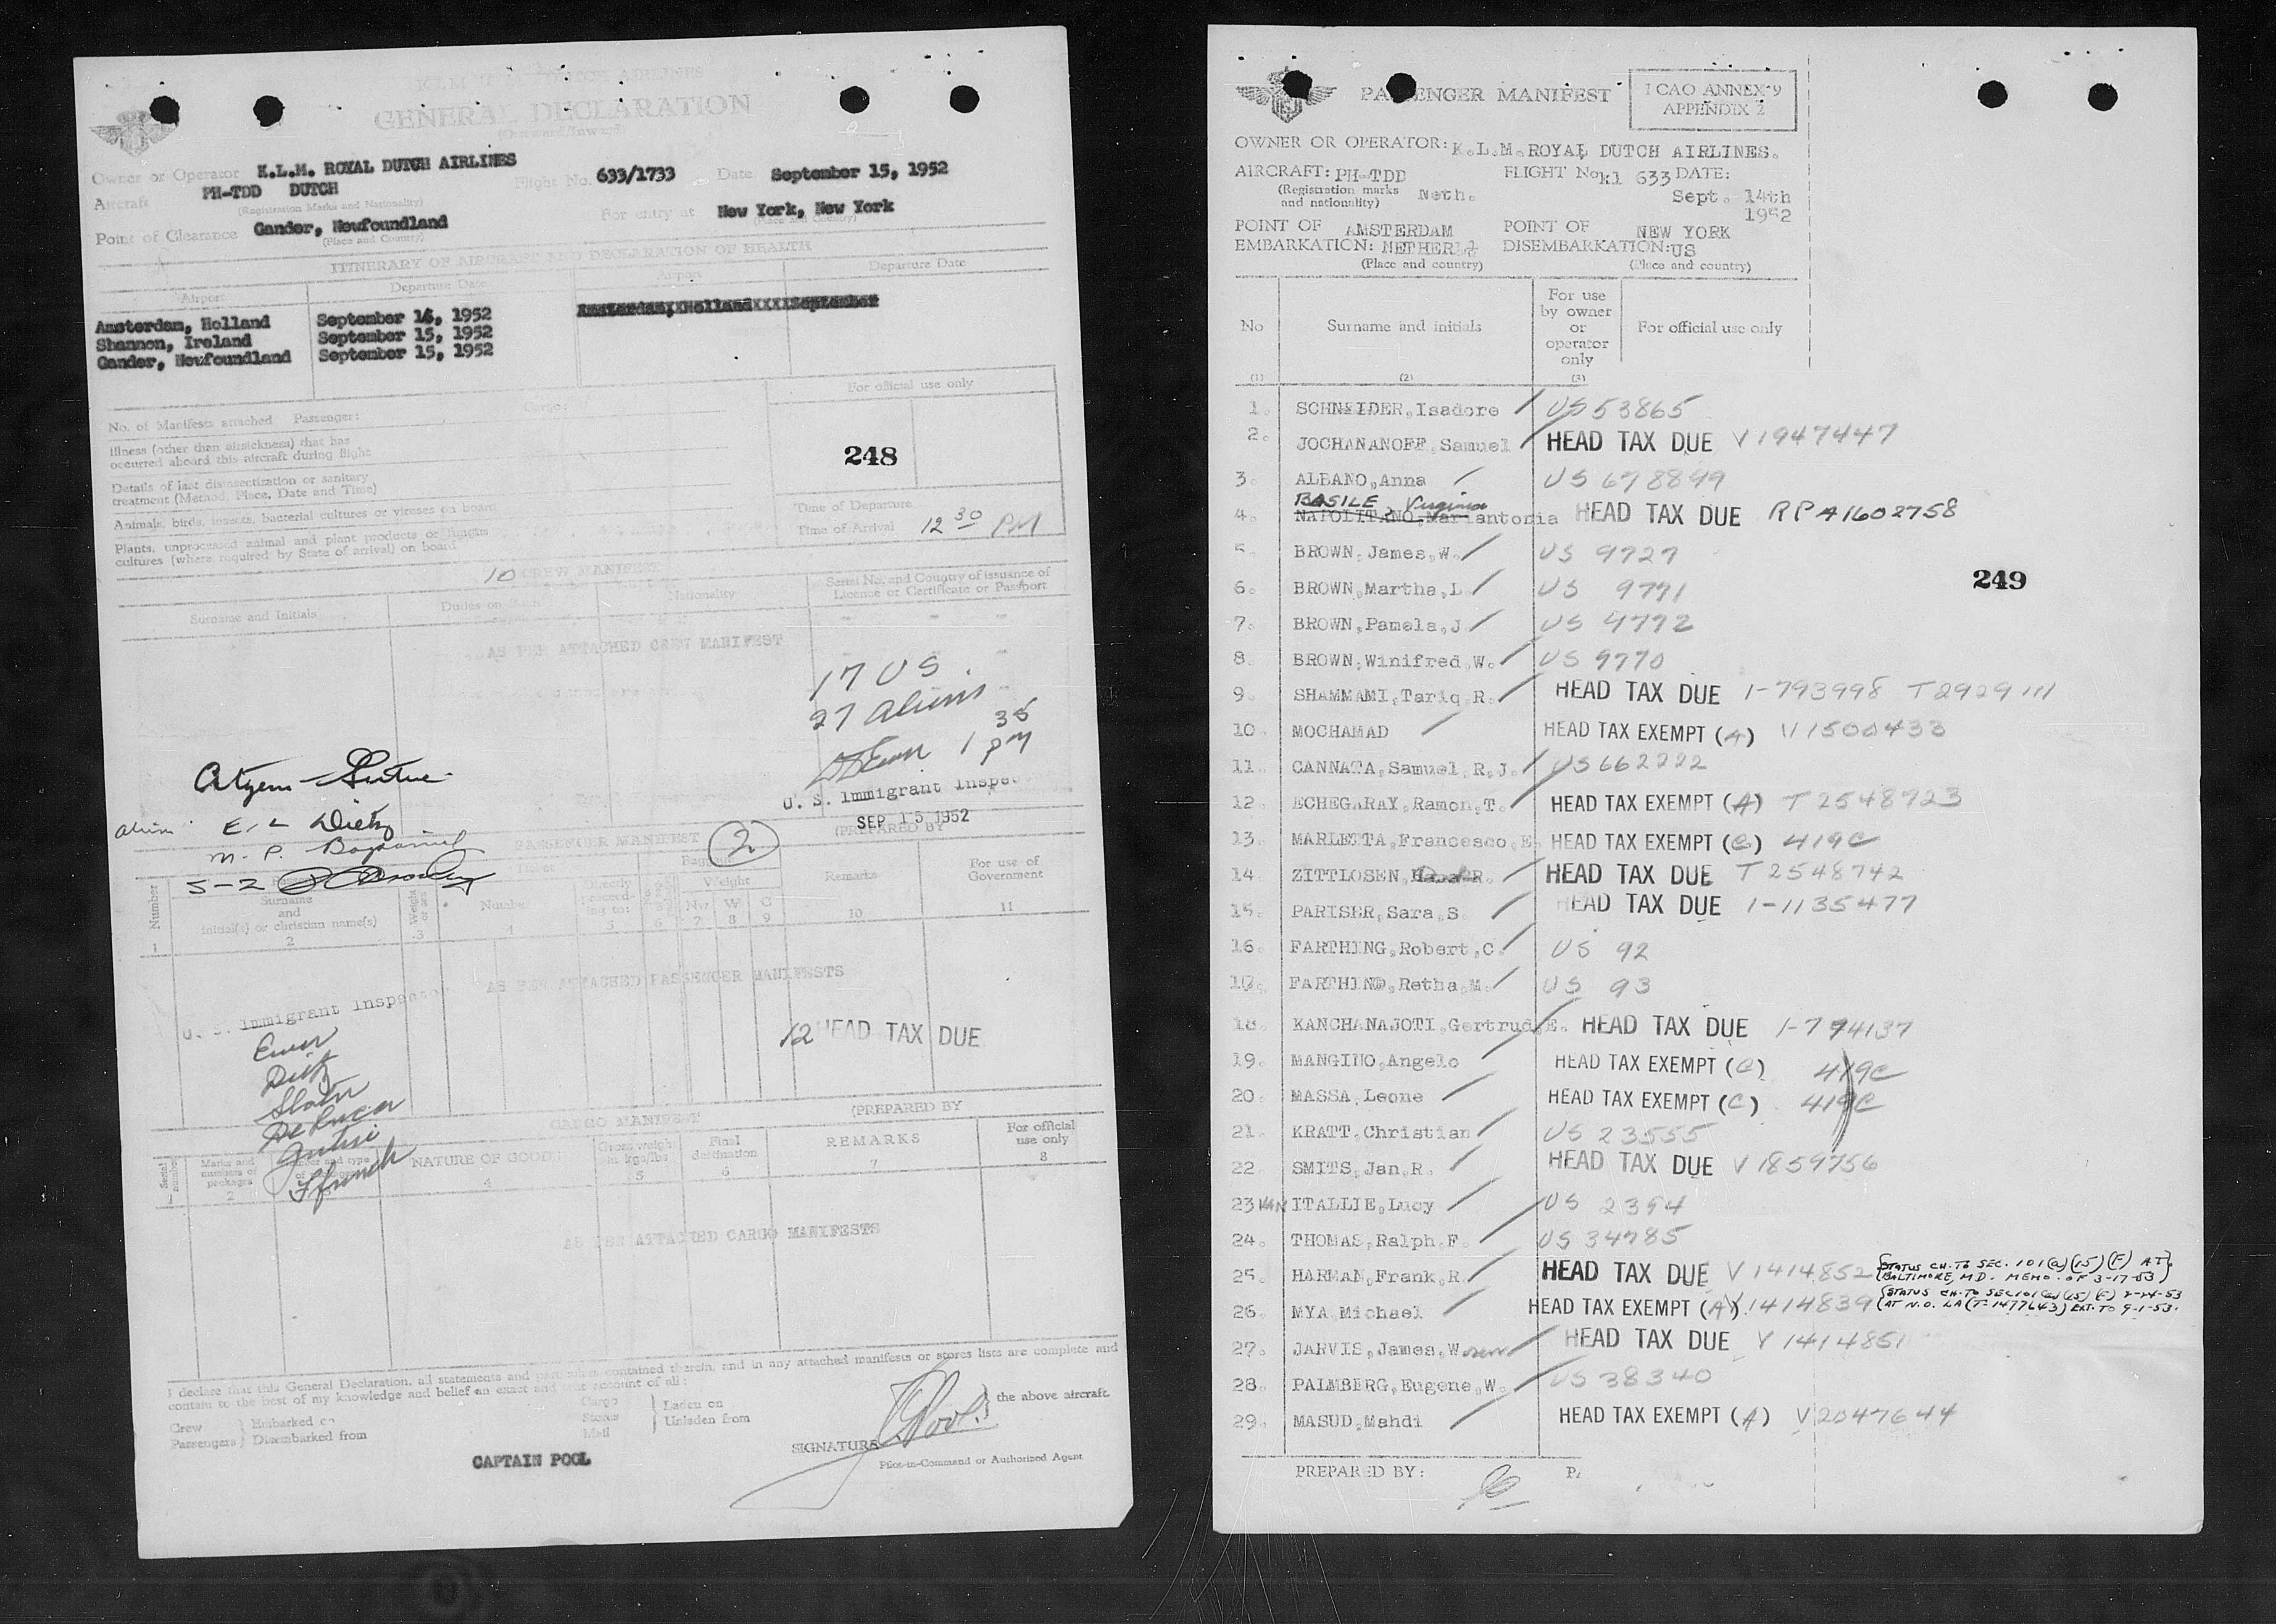 K.L.M. ROYAL DUTCH AIRLINES
GENERAL DECLARATION
(Outward/Inward)
Owner or Operator K.L.M. ROYAL DUTCH AIRLINES Flight No. 633/1733 Date September 15, 1952
Aircraft PH-TDD DUTCH
(Registration Marks and Nationality)
For entry at New York, New York
(Place and Country)
Point of Clearance Gander, Newfoundland
(Place and Country)
ITINERARY OF AIRCRAFT AND DECLARATION OF HEALTH
Airport Departure Date Airport Departure Date
Amsterdam, Holland September 14, 1952
Shannon, Ireland September 15, 1952
Gander, Newfoundland September 15, 1952
For official use only
No. of Manifests attached Passenger: Cargo:
Illness (other than airsickness) that has
occurred aboard this aircraft during flight
248
Details of last disinsectization or sanitary
treatment (Method, Place, Date and Time)
Animals, birds, insects, bacterial cultures or viruses on board
Time of Departure
Time of Arrival 12 30 PM
Plants, unprocessed animal and plant products or fungus
cultures (where required by State of arrival) on board
10 CREW MANIFEST
Surname and Initials Duties on Board Nationality Serial No. and Country of issuance of
Licence or Certificate or Passport
AS PER ATTACHED CREW MANIFEST
17 US
27 Aliens
1 35 PM
U. S. Immigrant Inspe
SEP 15 1952
E. L. Dietz
M. P.
S-2
PASSENGER MANIFEST (2) (PREPARED BY
Number
Surname
and
initial(s) or christian name(s)
Ticket
Number
Directly
proceed-
ing to:
Baggage
Weight
Nr. W C
Remarks
For use of
Government
1 2 3 4 5 6 7 8 9 10 11
AS PER ATTACHED PASSENGER MANIFESTS
U. S. Immigrant Inspector
Ewen
Dietz
Sloan
DeLuca
12 HEAD TAX DUE
CARGO MANIFEST (PREPARED BY
Serial
number
Marks and
numbers of
packages
Number and type
NATURE OF GOODS
Gross weight
in kgs/lbs
Final
destination
REMARKS
For official
use only
1 2 4 5 6 7 8
AS PER ATTACHED CARGO MANIFESTS
I declare that this General Declaration, all statements and particulars contained therein, and in any attached manifests or stores lists are complete and
contain to the best of my knowledge and belief an exact and true account of all:
Crew Embarked on
Passengers Disembarked from
Cargo
Stores
Mail
Laden on
Unladen from
the above aircraft.
CAPTAIN POOL
SIGNATURE Pool.
Pilot-in-Command or Authorized Agent
PASSENGER MANIFEST
ICAO ANNEX 9
APPENDIX 2
OWNER OR OPERATOR: K.L.M. ROYAL DUTCH AIRLINES.
AIRCRAFT: PH-TDD FLIGHT No kl 633 DATE:
(Registration marks
and nationality) Neth. Sept. 14th
1952
POINT OF AMSTERDAM POINT OF NEW YORK
EMBARKATION: NETHERL DISEMBARKATION: US
(Place and country) (Place and country)
No Surname and initials For use
by owner
or
operator
only For official use only
(1) (2) (3)
1. SCHNEIDER, Isadore US 53865
2. JOCHANANOFF, Samuel HEAD TAX DUE V 1947447
3. ALBANO, Anna US 678899
BASILE, Virginia
4. NAPOLITANO, Mariantonia HEAD TAX DUE RP A1602758
5. BROWN, James, W. US 9727
249
6. BROWN, Martha, L. US 9771
7. BROWN, Pamela, J. US 9772
8. BROWN, Winifred, W. US 9770
9. SHAMMAMI, Tariq R. HEAD TAX DUE 1-793998 T2929111
10. MOCHAMAD HEAD TAX EXEMPT (A) V1500433
11. CANNATA, Samuel, R.J. US 662222
12. ECHEGARAY, Ramon, T. HEAD TAX EXEMPT (A) T 2548723
13. MARLETTA, Francesco, E. HEAD TAX EXEMPT (C) 419C
14. ZITTLOSEN, R. HEAD TAX DUE T 2548742
15. PARISER, Sara, S. HEAD TAX DUE 1-1135477
16. FARTHING, Robert, C. US 92
17. FARTHING, Retha, M. US 93
18. KANCHANAJOTI, Gertrud, E. HEAD TAX DUE 1-794137
19. MANGINO, Angelo HEAD TAX EXEMPT (C) 419C
20. MASSA, Leone HEAD TAX EXEMPT (C) 419C
21. KRATT, Christian US 23555
22. SMITS, Jan, R. HEAD TAX DUE V 1859756
23 VAN ITALLIE, Lucy US 2394
24. THOMAS, Ralph, F. US 34785
25. HARMAN, Frank, R. HEAD TAX DUE V 1414852 {STATUS CH. TO SEC. 101(a)(15)(F) AT
BALTIMORE, MD. MEMO. OF 3-17-53}
26. MYA, Michael HEAD TAX EXEMPT (A) V 1414839 {STATUS CH. TO SEC 101(a)(15)(F) 2-24-53
AT N.O. LA (T-1477643) EXT. TO 9-1-53.
27. JARVIS, James, W. HEAD TAX DUE V 1414851
28. PALMBERG, Eugene, W. US 38340
29. MASUD, Mahdi HEAD TAX EXEMPT (A) V 2047644
PREPARED BY: